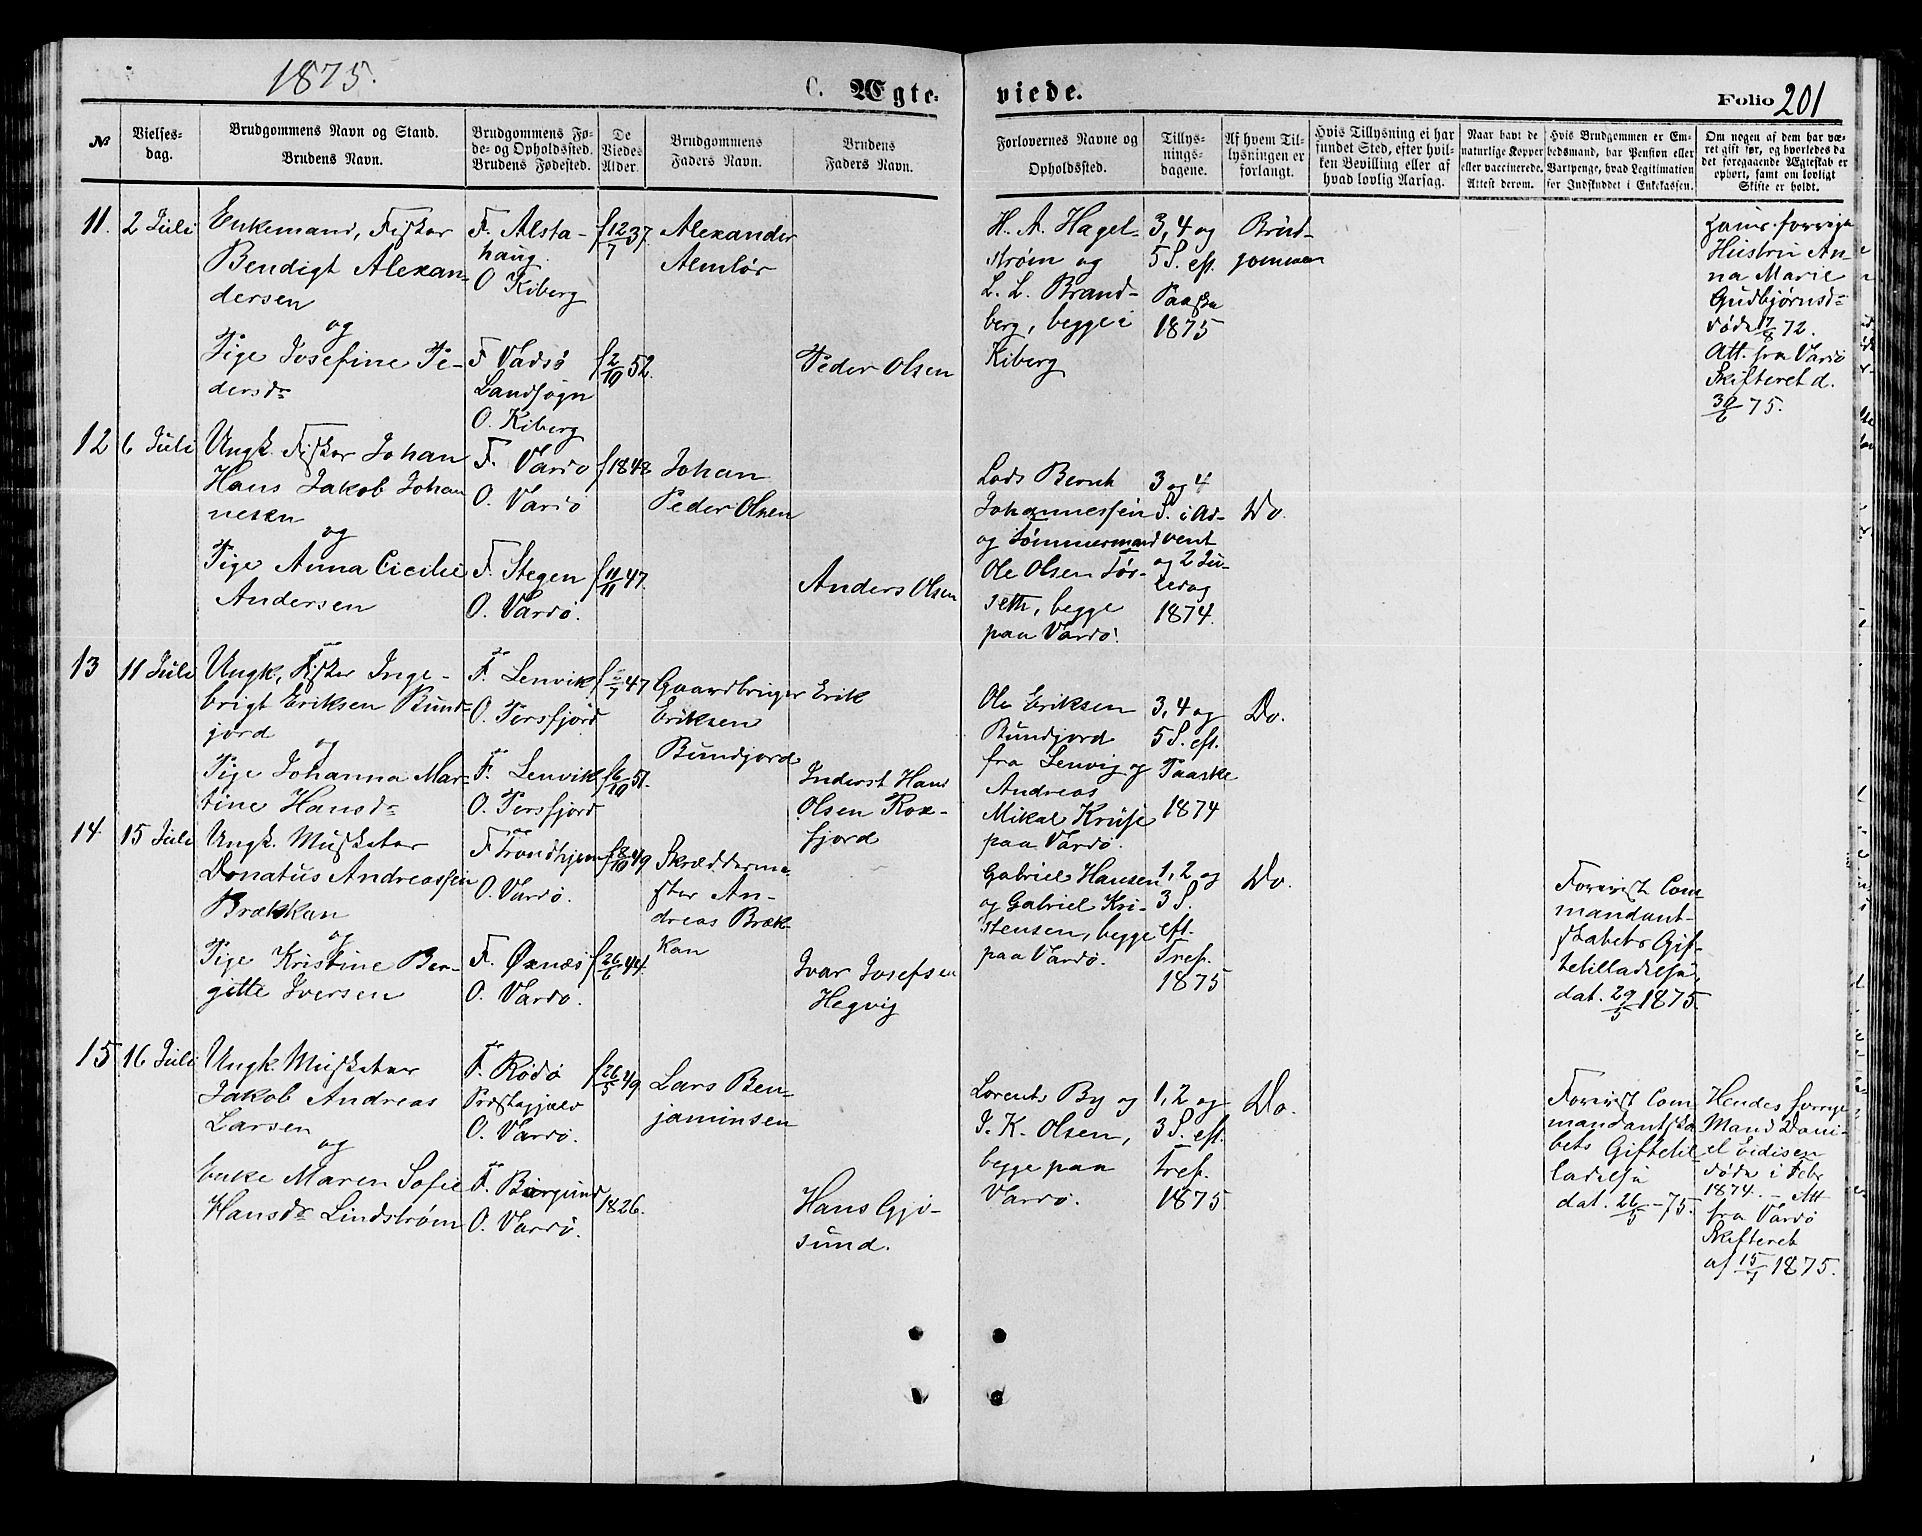 1875.
C. Ægte-
viede.
Folio 201
№
Vielses-
dag.
Brudgommens Navn og Stand.
Brudens Navn.
Brudgommens Fø-
de- og Opholdssted.
Brudens Fødested.
De
Viedes
Alder.
Brudgommens
Faders Navn.
Brudens
Faders Navn.
Forlovernes Navne og
Opholdssted.
Tillys-
nings-
dagene.
Af hvem Til-
lysningen er
forlangt.
Hvis Tillysning ei har
fundet Sted, efter hvil-
ken Bevilling eller af
hvad lovlig Aarsag.
Naar havt de
naturlige Kopper
eller vaccinerede.
Attest derom.
Hvis Brudgommen er Em-
bedsmand, har Pension eller
Vartpenge, hvad Legitimation
for Indskuddet i Enkekassen.
Om nogen af dem har væ-
ret gift før, og hvorledes da
det foregaaende Ægteskab er
ophørt, samt om lovligt
Skifte er holdt.
11.
2 Juli
Enkemand, Fisker
Bendigt Alexan-
dersen
og
Pige Josefine Pe-
dersdr
F. Alsta-
haug.
O Kiberg
F Vadsø
Landsogn
O. Kiberg
f 12/7 37
f 2/10 52.
Alexander
Almlør
Peder Olsen
H. A. Hagel-
strøm og
L. L. Brand-
berg, begge i
Kiberg
3, 4 og
5 S. eft.
Paaske
1875
Brud-
gommen
Hans forrige
Hustru An-
na Marie
Gudbjørnsd-
døde 17/8 72.
Att. fra Vardø
Skifteret d.
30/6 75.
12
6 Juli
Ungk. Fisker Johan
Hans Jakob Johan
nesen
og
Pige Anna Cicilie
Andersen
F. Vardø
O. Vardø
F. Stegen
O. Vardø.
f 1848
f 11/11 47.
Johan
Peder Olsen
Anders Olsen
Lods Bernt
Johannessen
og Tømmermand
Ole Olsen Tør-
seth, begge
paa Vardø.
3 og 4
S. i Ad-
vent
og 2 Ju-
ledag
1874.
Do.
13
11 Juli
Ungk. Fisker Inge-
brigt Eriksen Bund-
jord
og
Pige Johanna Mar-
tine Hansdr
F. Lenvik
O. Persfjord
F. Lenvik
O. Persfjord
f 47
f 6/10 51.
Gaardbruger Erik
Eriksen
Bundjord
Inderst Hans
Olsen Rox-
fjord
Ole Eriksen
Bundjord
fra Lenvig og
Andreas
Mikal Kruse
paa Vardø.
3, 4 og
5 S. eft.
Paaske
1874
Do.
14
15 Juli
Ungk. Musketer
Donatus Andreassen
Brækkan
og
Pige Kristine Ber-
gitte Iversen
F Trondhjem
O. Vardø.
F. Øxnæs
O. Vardø.
f 8/10 49
f 26/6 44.
Skrædderme-
ster An-
dreas Bræk-
kan
Ivar Josefsen
Hegvig
Gabriel Hansen
og Gabriel Kri-
stensen, begge
paa Vardø.
1, 2 og
3 S.
eft.
Tref.
1875
Do.
Forevist Com
mandant-
skabets Gif-
tetilladelse,
dat. 29/5 1875.
15
16 Juli
Ungk. Musketer
Jakob Andreas
Larsen
og
Enke Maren Sofie
Hansdr Lindstrøm
F. Rødø
Præstegjæld
O. Vardø.
F. Borgund
O. Vardø.
f 26/5 49
1826.
Lars Ben-
jaminsen
Hans Gjø-
sund.
Lorents By og
J. K. Olsen,
begge paa
Vardø.
1, 2 og
3 S. eft.
Tref.
1875.
Do.
Forevist Com
mandantska
bets Giftetil
ladelse
dat. 26/5 - 75.
Hendes forrige
Mand Dani-
el Eidisen
døde i Febr
1874. - Att
fra Vardø
Skifteret
af 15/7 1875.